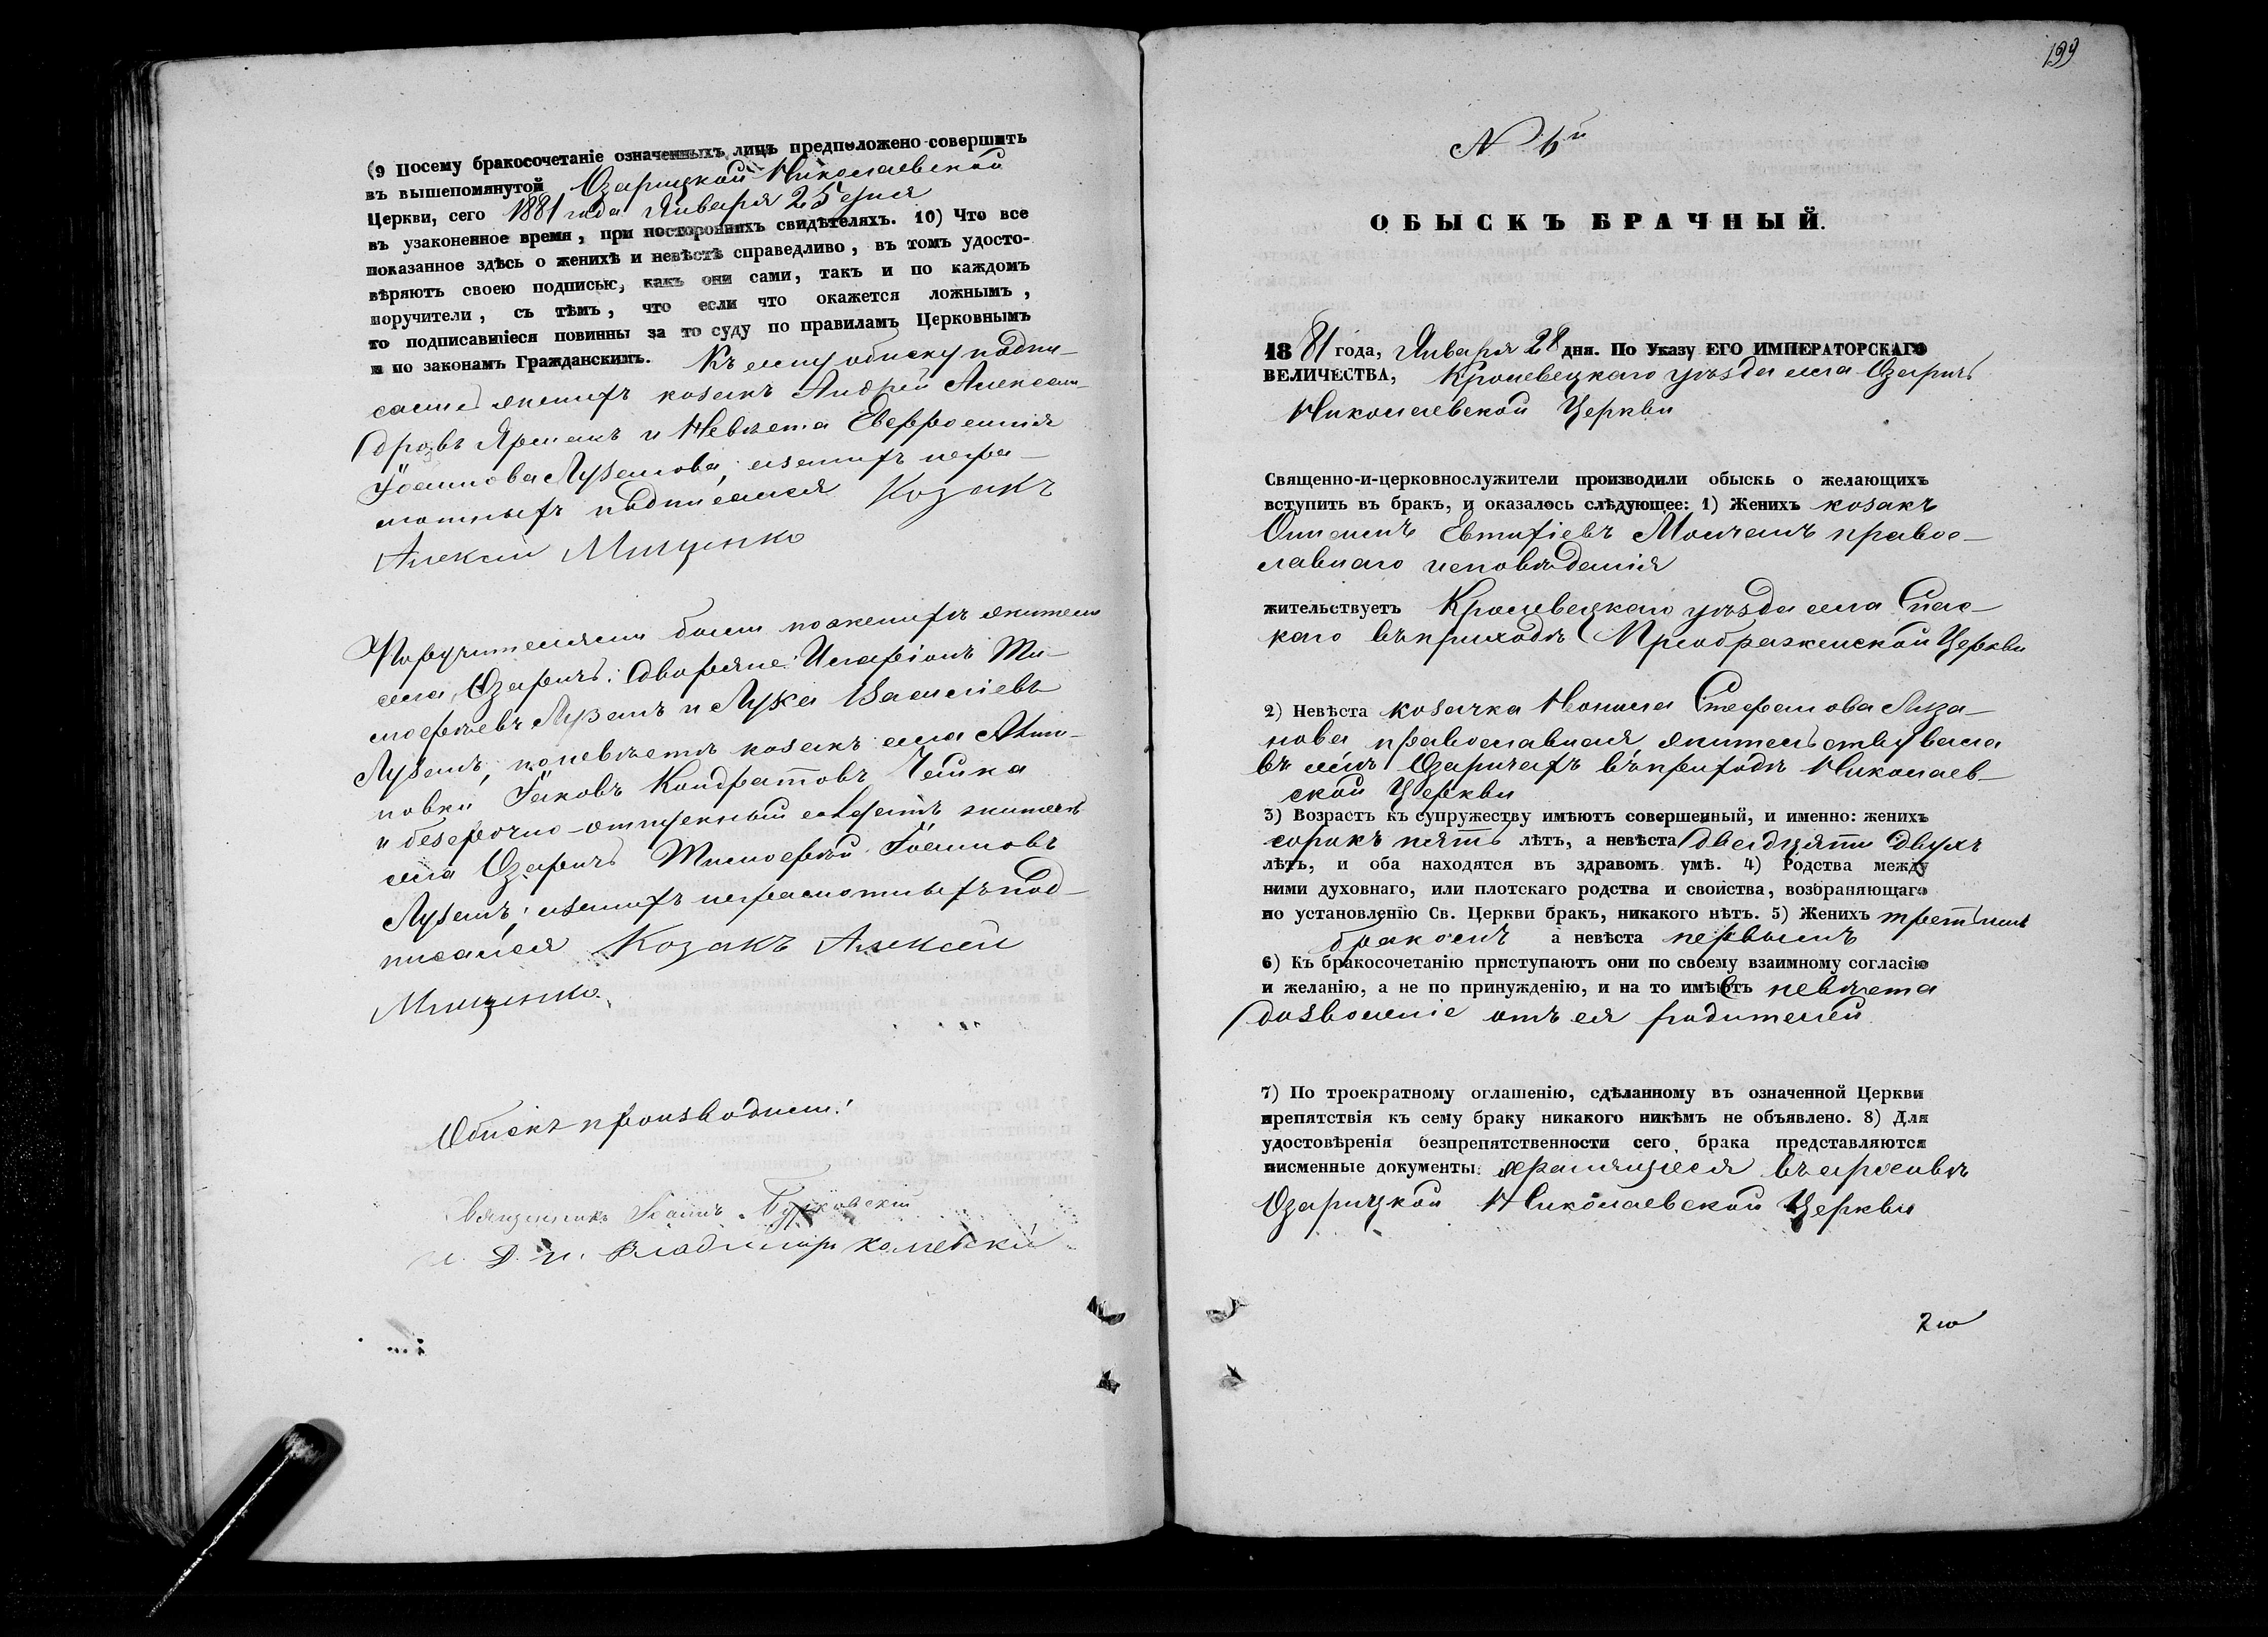 (9 Посему бракосочетаніе означенныхъ лицъ предположено совершить
въ вышепомянутой Озарицкой Николаевской
Церкви, сего 1881 года Января 25 дня
въ узаконенное время, при постороннихъ свидѣтеляхъ. 10) Что все
показанное здѣсь о женихѣ и невѣстѣ справедливо, въ томъ удосто-
вѣряютъ своею подписью, какъ они сами, такъ и по каждомъ
поручители, съ тѣмъ, что если что окажется ложнымъ,
то подписавшіеся повинны за то суду по правиламъ Церковнымъ
и по законамъ Гражданскимъ. Къ сему обиску подпи-
сались женихъ козакъ Андрей Алексан-
дровъ Ярмакъ и Невѣста Евфросинія
Іоаннова Лузанова, изъ нихъ негра-
мотныхъ подписался Козакъ
Алексій Мищенко
Поручителями были по женихѣ жители
села Озаричъ: дворяне Иларіонъ Ти-
моѳѣевъ Лузанъ и Лука Василіевъ
Лузанъ, по невѣстѣ козакъ села
новки Іаковъ Кондратовъ Чешка
и безсрочно-отпускный солдатъ житель
села Озаричъ Тимоѳѣй Іоанновъ
Лузанъ; изъ нихъ неграмотныхъ под-
писался Козакъ Алексей
Мищенко.
Обискъ производили:
Священникъ Іоаннъ
и. д. п. Владимиръ
199
N 6й
ОБЫСКЪ БРАЧНЫЙ.
1881 года, Января 28 дня. По Указу ЕГО ИМПЕРАТОРСКАГО
ВЕЛИЧЕСТВА, Кролевецкаго уѣзда села Озаричъ
Николаевской Церкви
Священно-и-церковнослужители производили обыскъ о желающихъ
вступить въ бракъ, и оказалось слѣдующее: 1) Женихъ козакъ
Евтихіевъ Молчанъ право-
славнаго исповѣданія
жительствуетъ Кролевецкаго уѣзда села Спас-
каго въ приходѣ Преображенской Церкви
2) Невѣста козачка Нонила Стефанова Луза-
нова православная, жительствовала
въ селѣ Озаричахъ въ приходѣ Николаев-
ской Церкви
3) Возрастъ къ супружеству имѣютъ совершенный, и именно: женихъ
сорокъ пять лѣтъ, а невѣста двадцяти двухъ
лѣтъ, и оба находятся въ здравомъ умѣ. 4) Родства между
ними духовнаго, или плотскаго родства и свойства, возбраняющаго
по установленію Св. Церкви бракъ, никакого нѣтъ. 5) Женихъ третьимъ
бракомъ а невѣста первымъ
6) Къ бракосочетанію приступаютъ они по своему взаимному согласію
и желанію, а не по принужденію, и на то имѣетъ невѣста
дозволеніе отъ ея родителей
7) По троекратному оглашенію, сдѣланному въ означенной Церкви
препятствія къ сему браку никакого никѣмъ не объявлено. 8) Для
удостовѣренія безпрепятственности сего брака представляются
писменные документы: хранящіеся въ архивѣ
Озарицкой Николаевской Церкви